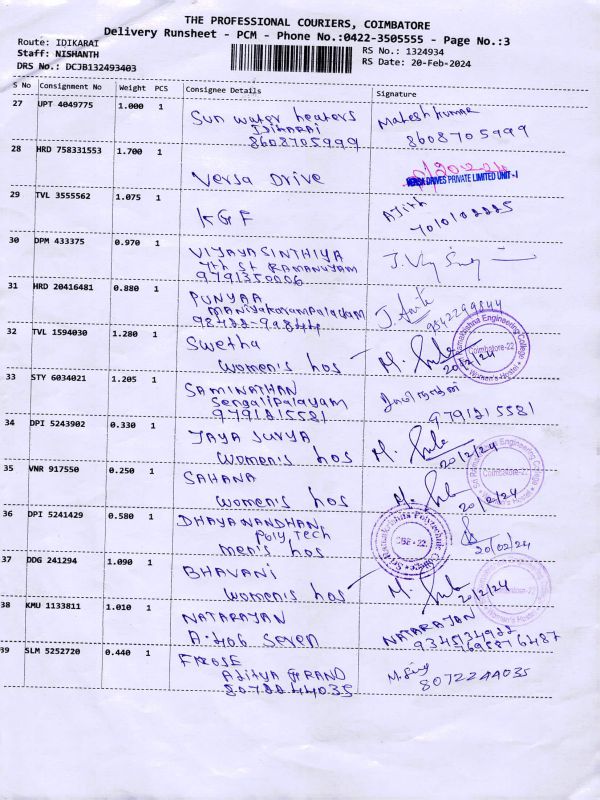 THE PROFESSIONAL COURIERS, COIMBATORE
Delivery Runsheet - PCM - Phone No.:0422-3505555 - Page No.:3
Route: IDIKARAI
Staff: NISHANTH
DRS No.: DCJB132493403
RS No.: 1324934
RS Date: 20-Feb-2024
S No Consignment No Weight PCS Consignee Details Signature
27 UPT 4049775 1.000 1
Sun water heaters
IDIKARAI
8608705999
Mahesh kumar
8608705999
28 HRD 758331553 1.700 1
Versa Drive
VERSA DRIVES PRIVATE LIMITED UNIT - I
29 TVL 3555562 1.075 1
KGF
Ajith
30 DPM 433375 0.970 1
VIJAYASINTHIYA
7th St RAMANUJAM
9791350006
31 HRD 20416481 0.880 1
PUNYAA
Maniyakarampalayam
32 TVL 1594030 1.280 1
Swetha
women's hos
20/2/24
Ramakrishna Engineering College
Coimbatore-22
Women's Hostel
33 STY 6034021 1.205 1
SAMINATHAN
Sengalipalayam
9791215581
9791215581
34 DPI 5243902 0.330 1
JAYA SURYA
women's hos
20/2/24
Sri Ramakrishna Engineering College
Coimbatore-22
Women's Hostel
35 VNR 917550 0.250 1
SAHANA
women's hos
20/2/24
36 DPI 5241429 0.580 1
DHAYANANDHAN,
Poly,Tech
men's hos
Sri Ramakrishna Polytechnic College
CBE - 22.
20/02/24
37 DDG 241294 1.090 1
BHAVANI
women's hos
20/2/24
38 KMU 1133811 1.010 1
NATARAJAN
A:406 Seven
NATARAJAN
39 SLM 5252720 0.440 1
FIROSE
Aditya GRAND
8072244035